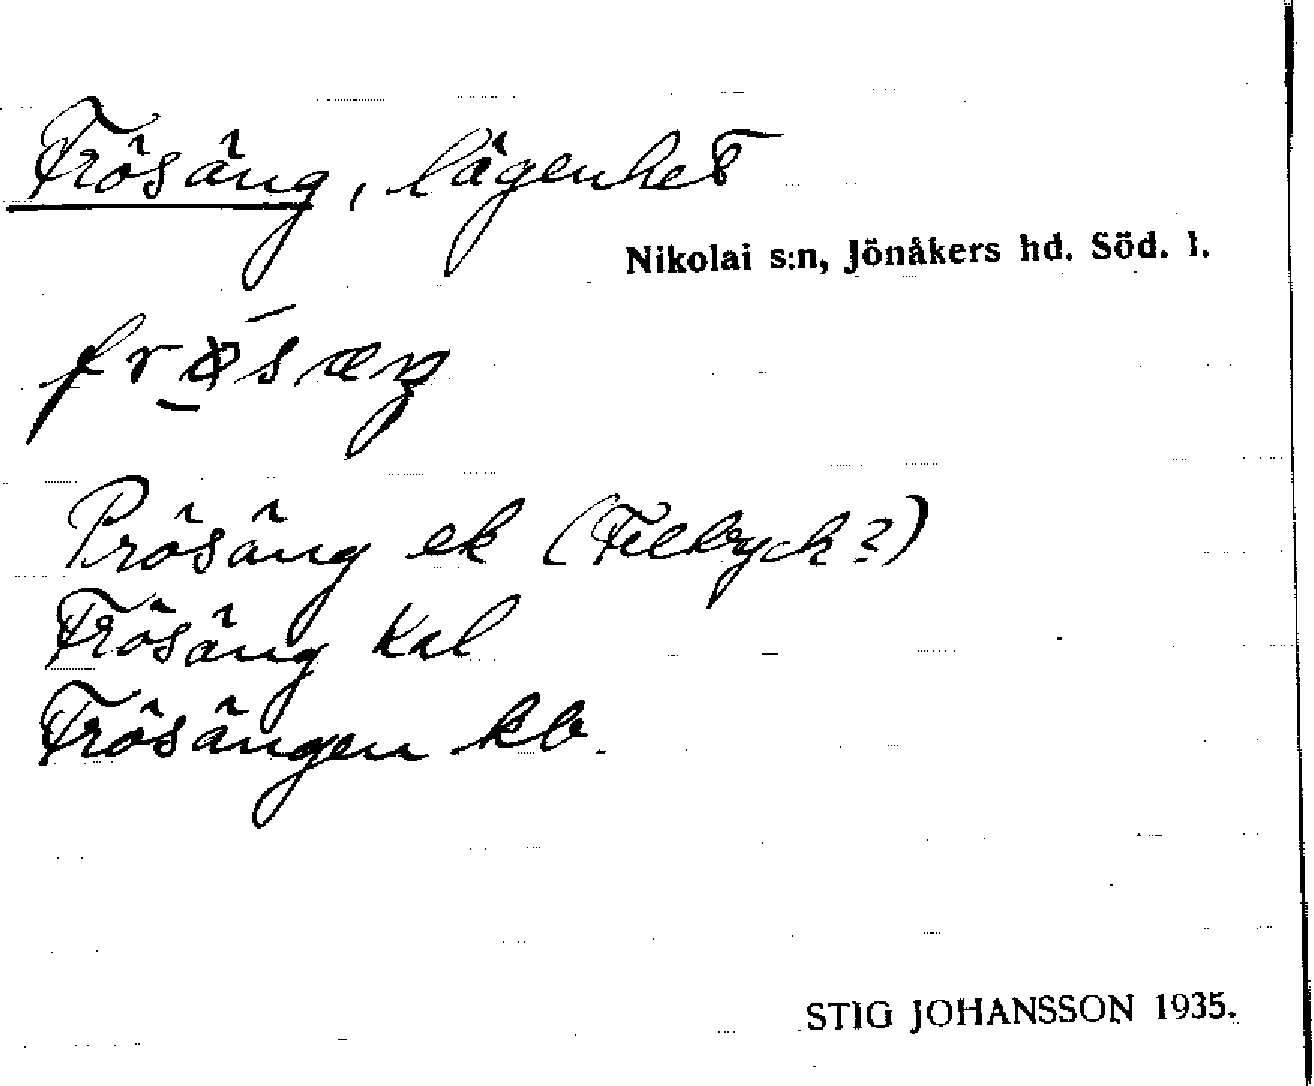 Frösäng, lägenhet
Nikolai s:n, Jönåkers hd. Söd. l.
Prösäng ek (Feltryck?)
Frösäng Kal
Frösängen kb.
STIG JOHANSSON 1935.